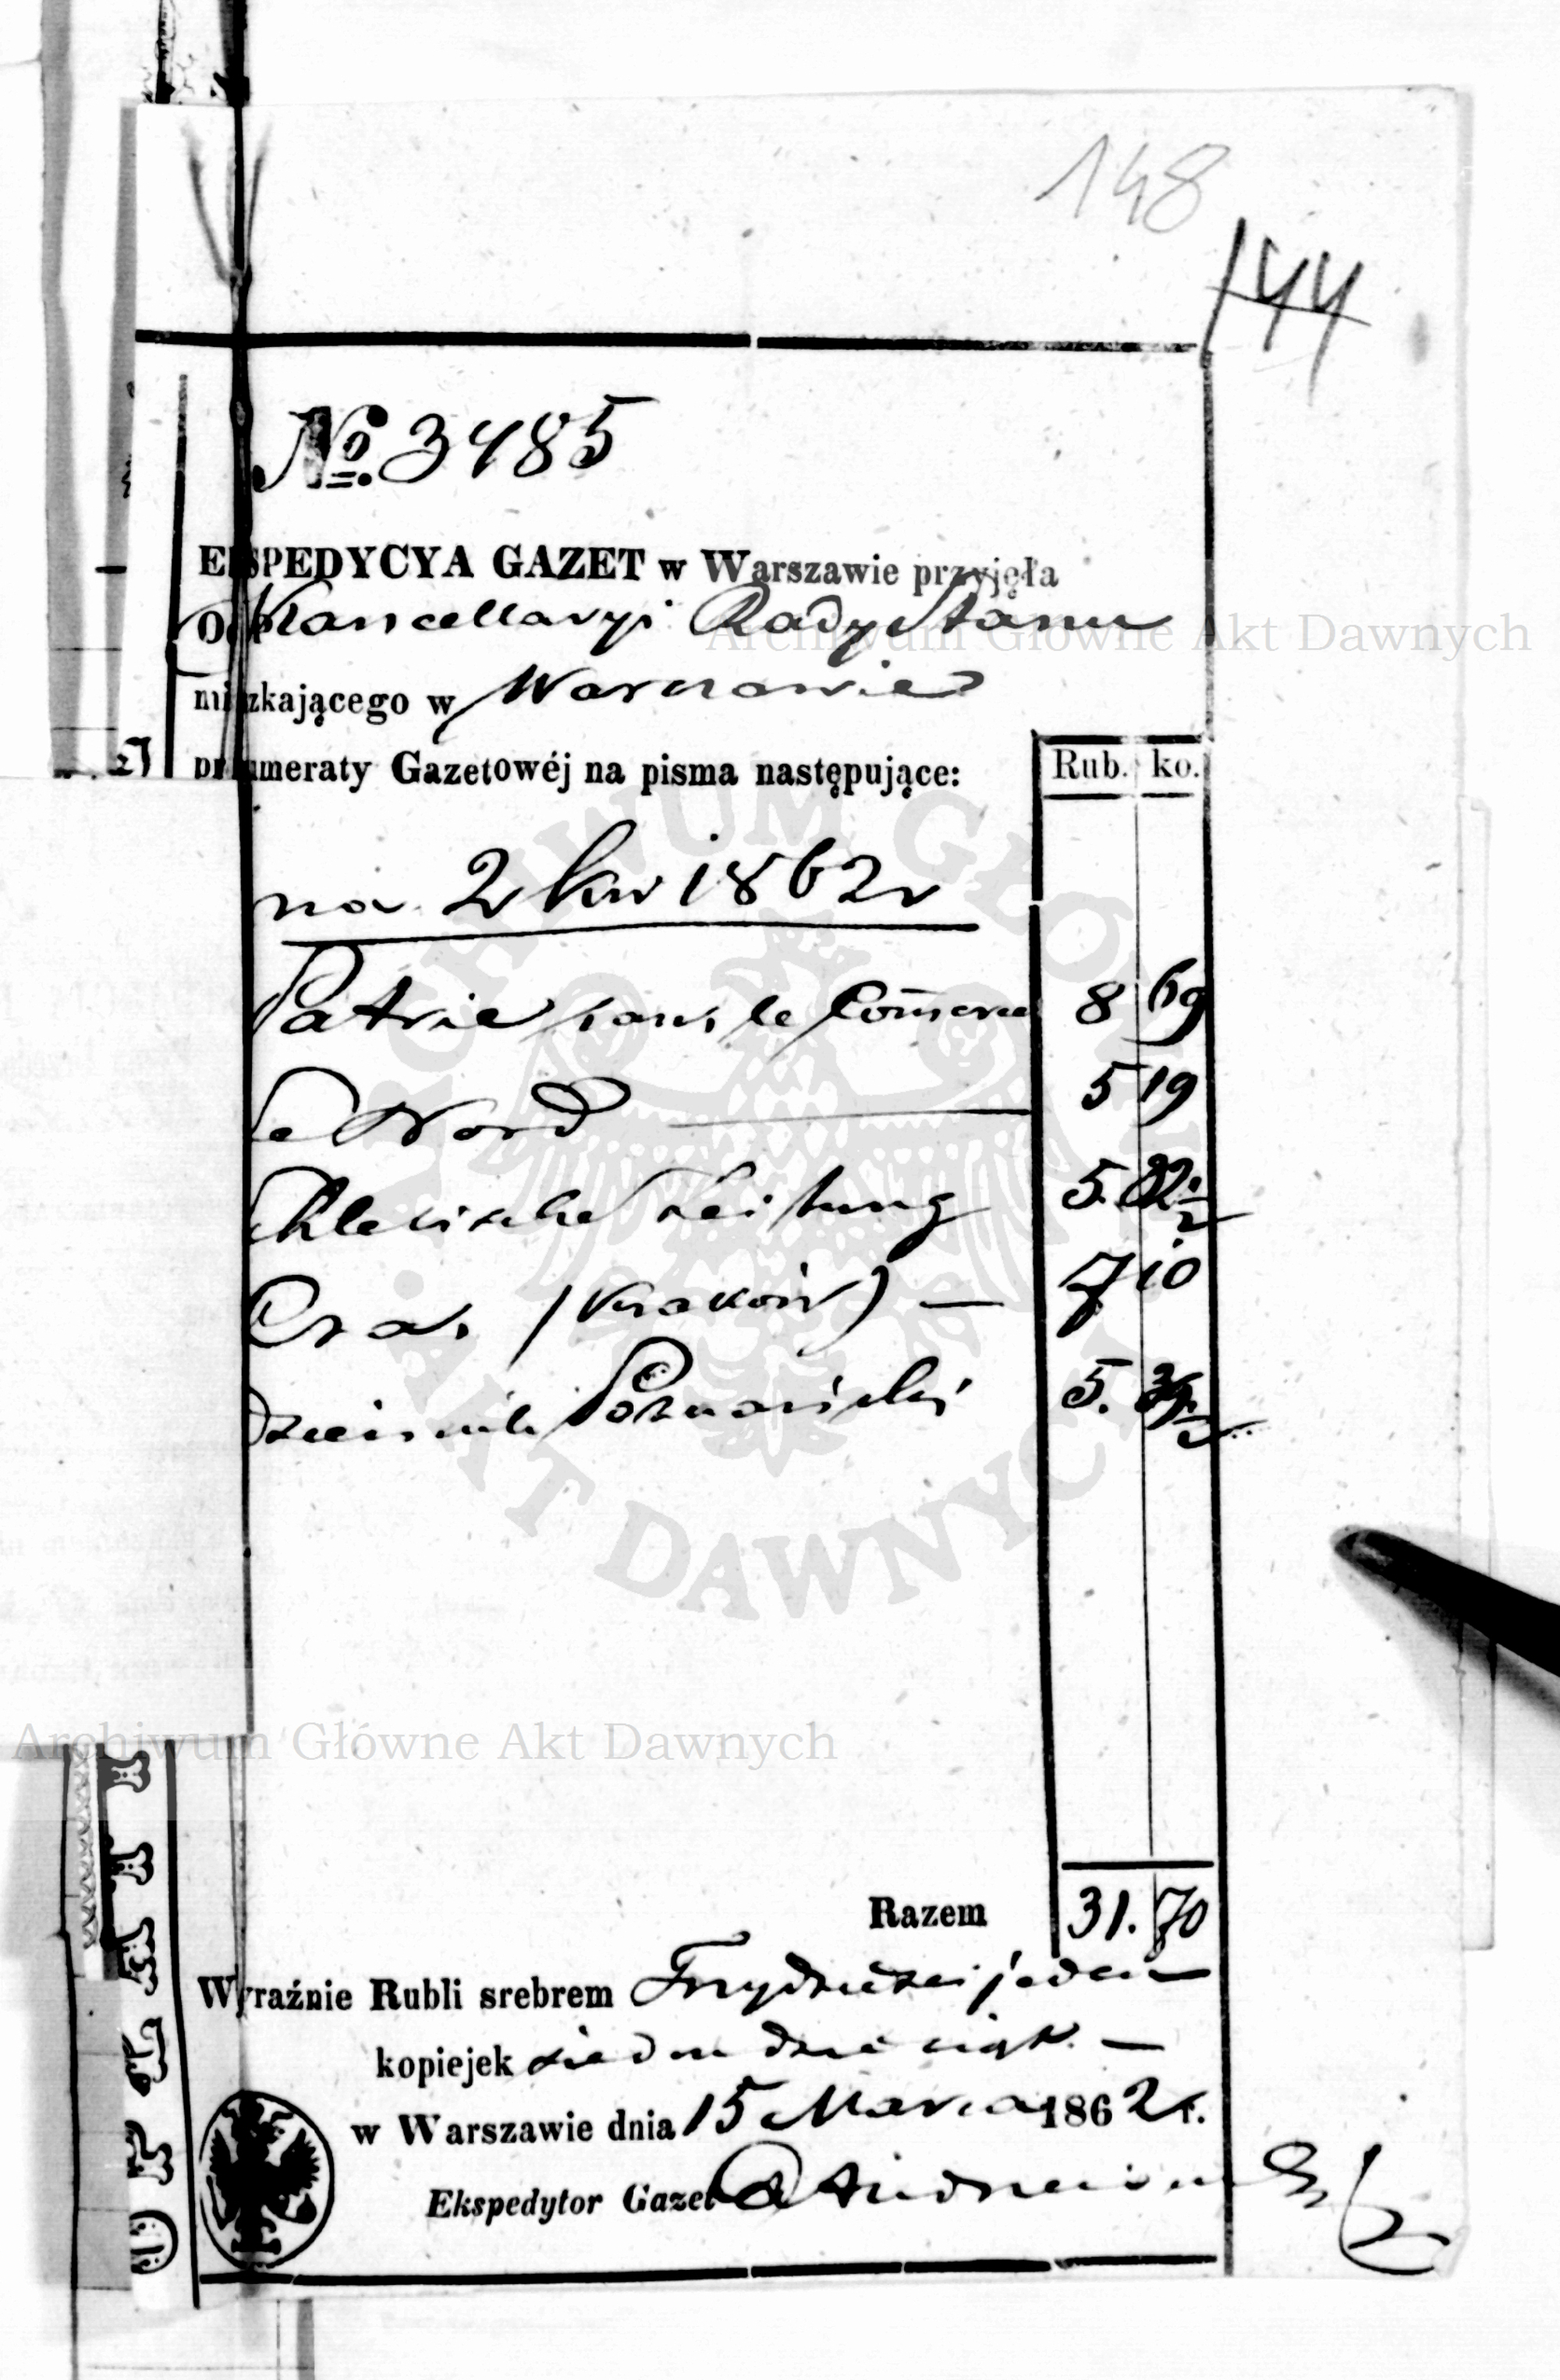 148
144
№ 3485
EKSPEDYCYA GAZET w Warszawie przyjęła
Od Kancellaryi Rady Stanu
mieszkającego w Warszawie
prenumeraty Gazetowéj na pisma następujące:
Rub. ko.
na 2 kw 1862 r
Patrie sans le Com̄erce 8 69
Le Nord 5 19
Schlesische Zeitung 5. 32½
Czas (Kraków) — 7 10
Dziennik Poznański 5. 39½
Razem 31. 70
Wyraźnie Rubli srebrem Trzydzieści jeden
kopiejek siedmdziesiąt —
w Warszawie dnia 15 Marca 1862 r.
Ekspedytor Gazet
Archiwum Główne Akt Dawnych
ARCHIWUM GŁÓWNE AKT DAWNYCH
Archiwum Główne Akt Dawnych